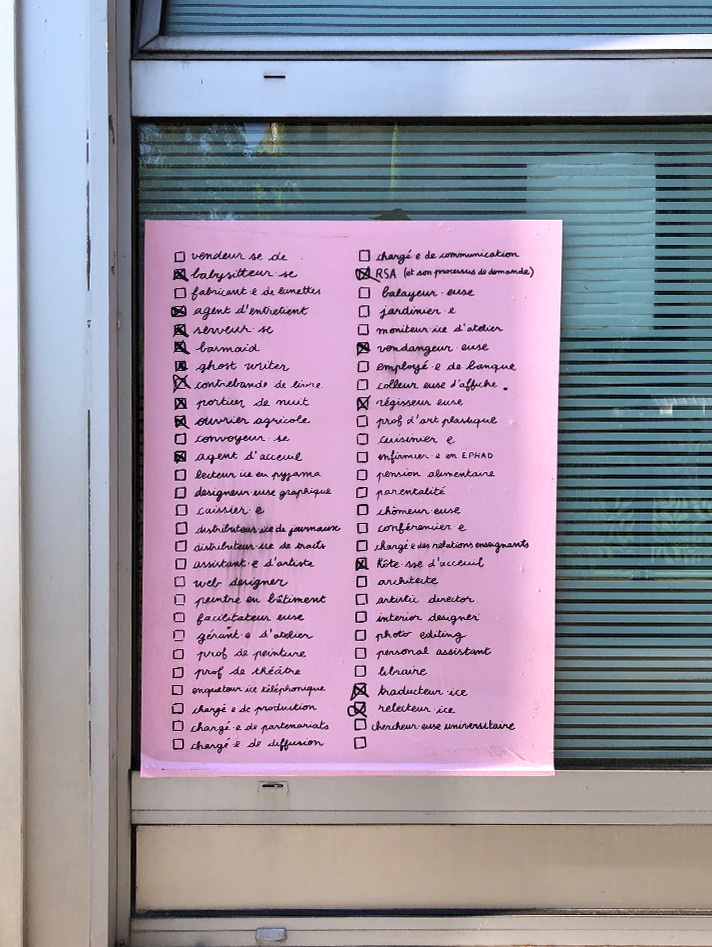 vendeur·se de
babysitteur·se
fabricant·e de lunettes
agent d'entretient
serveur·se
barmaid
ghost writer
contrebande de livre
portier de nuit
ouvrier agricole
convoyeur·se
agent d'acceuil
lecteur·ice en pyjama
designeur·euse graphique
caissier·e
distributeur·ice de journaux
distributeur·ice de tracts
assistant·e d'artiste
web designer
peintre en bâtiment
facilitateur·euse
gérant·e d'atelier
prof de peinture
prof de théâtre
enqueteur·ice téléphonique
chargé·e de production
chargé·e de partenariats
chargé·e de diffusion
chargé·e de communication
RSA (et son processus de demande)
balayeur·euse
jardinier·e
moniteur·ice d'atelier
vendangeur·euse
employé·e de banque
colleur·euse d'affiche.
régisseur·euse
prof d'art plastique
cuisinier·e
infirmier·e en EPHAD
pension alimentaire
parentalité
chômeur·euse
conférencier·e
chargé·e des relations enseignants
hôte·sse d'acceuil
architecte
artistic director
interior designer
photo editing
personal assistant
libraire
traducteur·ice
relecteur·ice
chercheur·euse universitaire